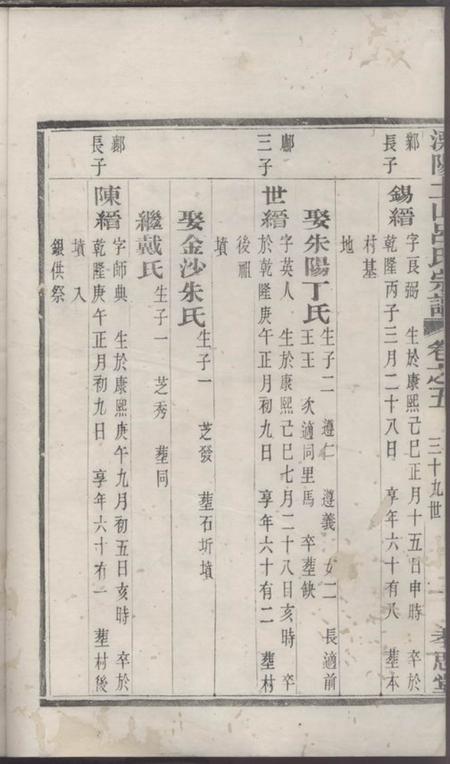 溧陽 山呂氏宗譜 卷之五 三十九世 一 孝思堂
鄴長子
錫縉 字長弼 生於康熙己巳正月十五日申時 卒於
乾隆丙子三月二十八日 享年六十有八 葬本
村基
地
娶朱陽丁氏 生子二 遵仁 遵義 女二 長適前
王王 次適同里馬 卒葬缺
三子
世縉 字英人 生於康熙己巳七月二十八日亥時 卒
於乾隆庚午正月初九日 享年六十有二 葬村
後祖
墳
娶金沙朱氏 生子一 芝發 葬石圻墳
繼戴氏 生子一 芝秀 葬同
鄴長子
陳縉 字師典 生於康熙庚午九月初五日亥時 卒於
乾隆庚午正月初九日 享年六十有一 葬村後
墳 入
銀供祭